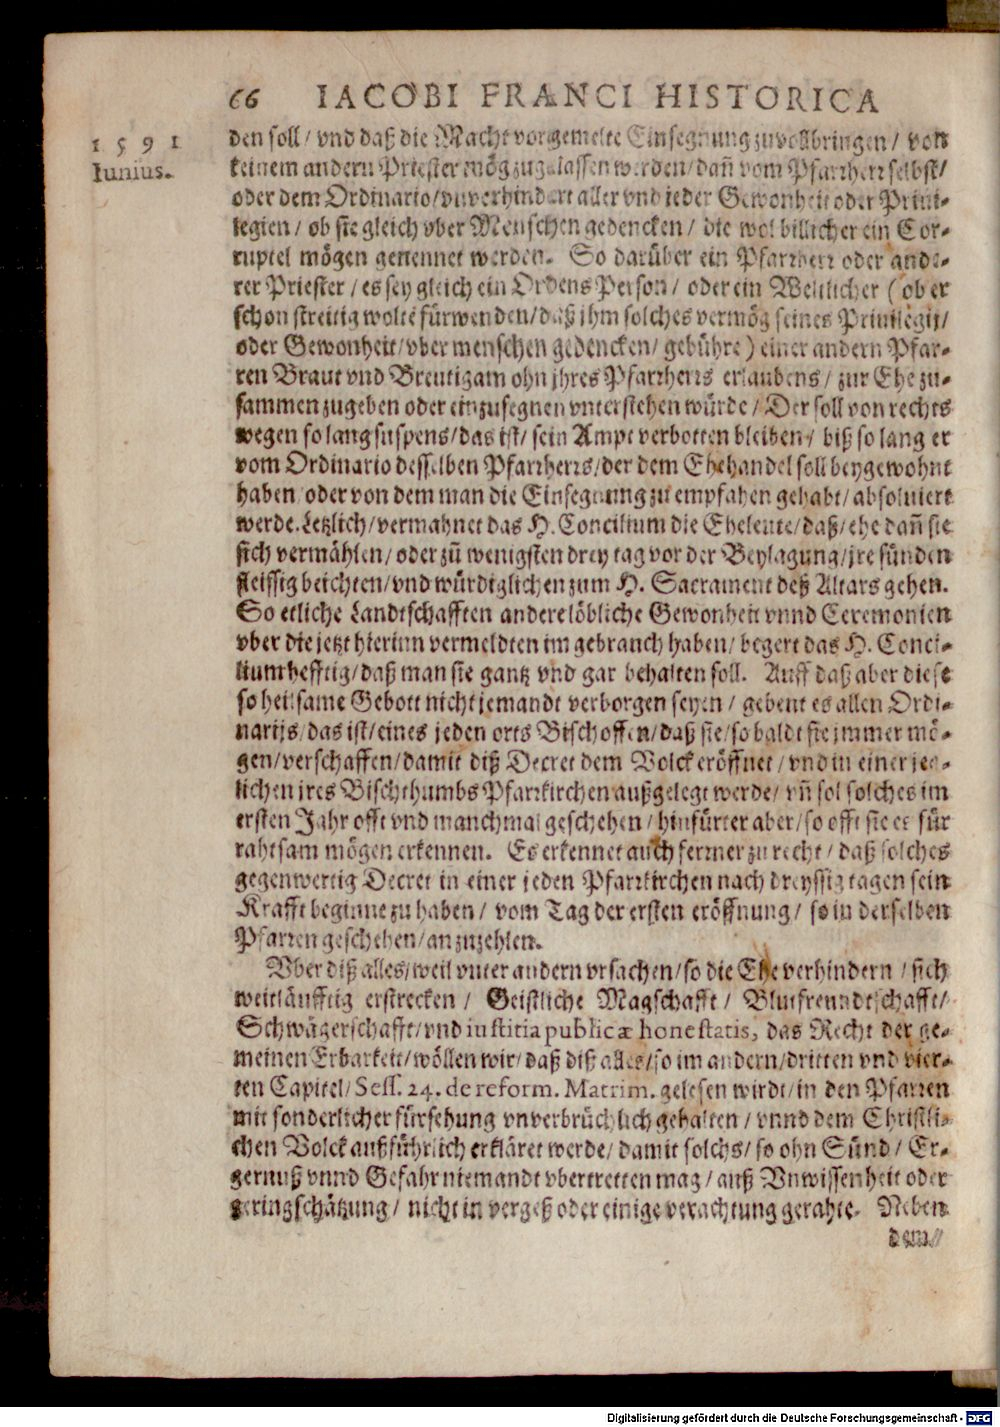 66 IACOBI FRANCI HISTORICA
1591
Iunius.
den soll / vnd daß die Macht vorgemelte Einsegnung zu vollbringen / von
keinem andern Priester mög zugelassen werden / dañ vom Pfarrherr selbst /
oder dem Ordinario / vnverhindert aller vnd jeder Gewonheit oder Priui-
legien / ob sie gleich vber Menschen gedencken / die wol billicher ein Cor-
ruptel mögen genennet werden. So darüber ein Pfarrherr oder ande-
rer Priester / es sey gleich ein Ordens Person / oder ein Weltlicher ( ob er
schon streitig wolte fürwenden / daß jhm solches vermög seines Priuilegij /
oder Gewonheit / vber menschen gedencken / gebühre ) einer andern Pfar-
ren Braut vnd Breutigam ohn jhres Pfarrherrs erlaubens / zur Ehe zu-
sammen zugeben oder einzusegnen vnterstehen würde / Der soll von rechts
wegen so lang suspens / das ist / sein Ampt verbotten bleiben / biß so lang er
vom Ordinario desselben Pfarrherrs / der dem Ehehandel soll beygewohnt
haben / oder von dem man die Einsegnung zu empfahen gehabt / absoluiert
werde. Letzlich / vermahnet das H. Concilium die Eheleute / daß / ehe dañ sie
sich vermählen / oder zũ wenigsten drey tag vor der Beylagung / jre sünden
fleissig beichten / vnd würdiglichen zum H. Sacrament deß Altars gehen.
So etliche Landtschafften andere löbliche Gewonheit vnnd Ceremonien
vber die jetzt hierinn vermeldten im gebrauch haben / begert das H. Conci-
lium hefftig / daß man sie gantz vnd gar behalten soll. Auff daß aber diese
so heilsame Gebott nicht jemandt verborgen seyen / gebeut es allen Ordi-
narijs / das ist / eines jeden orts Bischoffen / daß sie / so baldt sie jmmer mö-
gen / verschaffen / damit diß Decret dem Volck eröffnet / vnd in einer jeg-
lichen jres Bischthumbs Pfarrkirchen außgelegt werde / vñ sol solches im
ersten Jahr offt vnd manchmal geschehen / hinfürter aber / so offt sie es für
rahtsam mögen erkennen. Es erkennet auch ferrner zu recht / daß solches
gegenwertig Decret in einer jeden Pfarrkirchen nach dreyssig tagen sein
Krafft beginne zu haben / vom Tag der ersten eröffnung / so in derselben
Pfarren geschehen / anzuzehlen.
Vber diß alles / weil vnter andern vrsachen / so die Ehe verhindern / sich
weitläufftig erstrecken / Geistliche Magschafft / Blutfreundtschafft /
Schwägerschafft / vnd iustitia publicæ honestatis, das Recht der ge-
meinen Erbarkeit / wöllen wir / daß diß alles / so im andern / dritten vnd vier-
ten Capitel / Sess. 24. de reform. Matrim. gelesen wirdt / in den Pfarren
mit sonderlicher fürsehung vnverbrüchlich gehalten / vnnd dem Christli-
chen Volck außführlich erkläret werde / damit solchs / so ohn Sünd / Er-
gernuß vnnd Gefahr niemandt vbertretten mag / auß Vnwissenheit oder
geringschätzung / nicht in vergeß oder einige verachtung gerahte. Neben
dem //
Digitalisierung gefördert durch die Deutsche Forschungsgemeinschaft - DFG